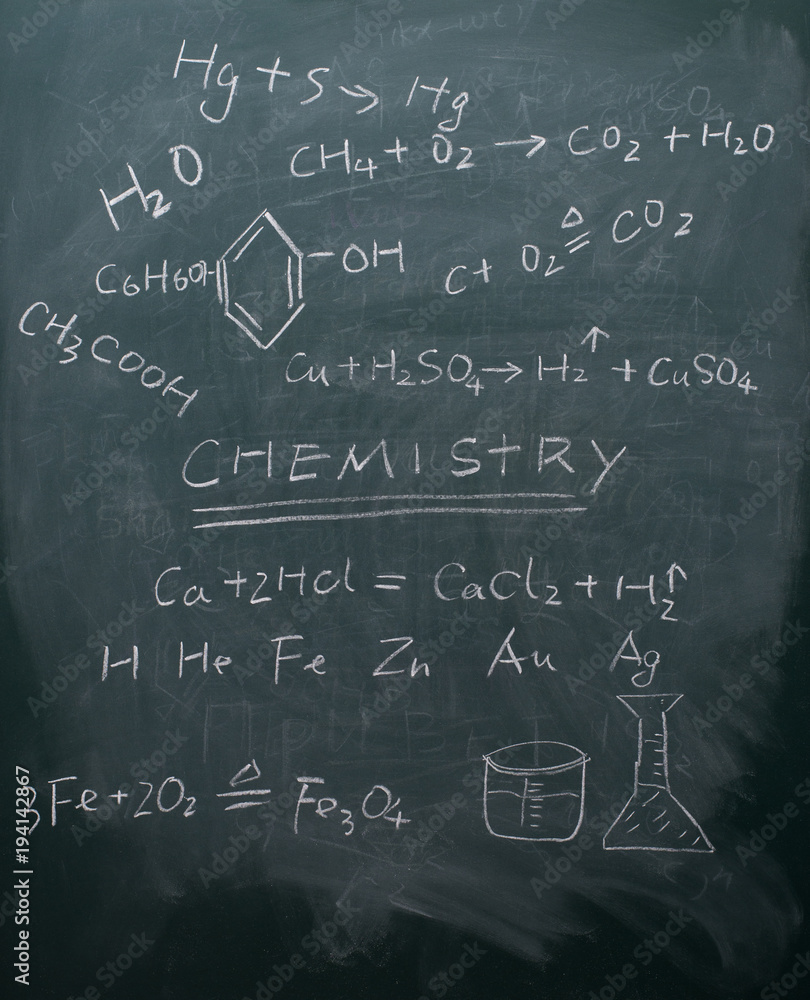 Hg + S → Hg
CH₄ + O₂ → CO₂ + H₂O
H₂O
C + O₂ ≜ CO₂
C₆H₆O -OH
CH₃COOH
Cu + H₂SO₄ → H₂↑ + CuSO₄
CHEMISTRY
Ca + 2HCl = CaCl₂ + H₂↑
H He Fe Zn Au Ag
3Fe + 2O₂ ≜ Fe₃O₄
Adobe Stock | #194142867